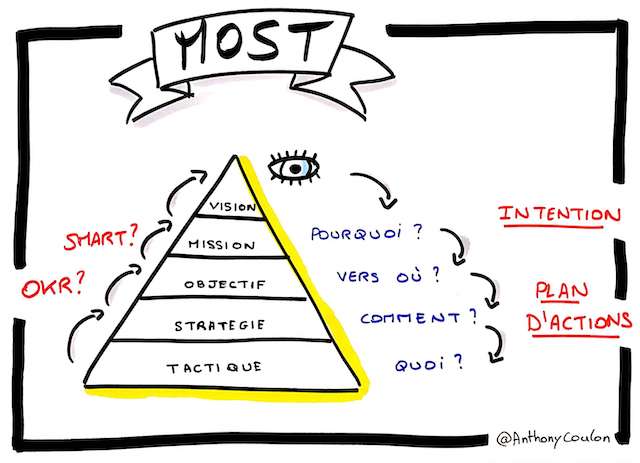 MOST
VISION
MISSION
OBJECTIF
STRATEGIE
TACTIQUE
SMART?
OKR?
POURQUOI ?
VERS OÙ ?
COMMENT ?
QUOI ?
INTENTION
PLAN
D'ACTIONS
@AnthonyCoulon